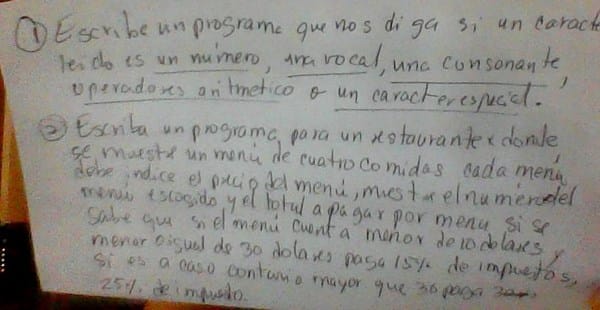 ① Escribe un programa que nos diga si un caracte
leido es un número, una vocal, una consonante,
operadores aritmetico o un caracter especial.
② Escriba un programa para un restaurante donde
se muestre un menú de cuatro comidas cada menú
debe indice el precio del menú, muestre el número del
menú escogido y el total a pagar por menu si se
sabe que si el menú cuenta menor de 10 dolares,
menor o igual de 30 dolares paga 15% de impuestos,
si es a caso contrario mayor que 30 paga
25% de impuesto.